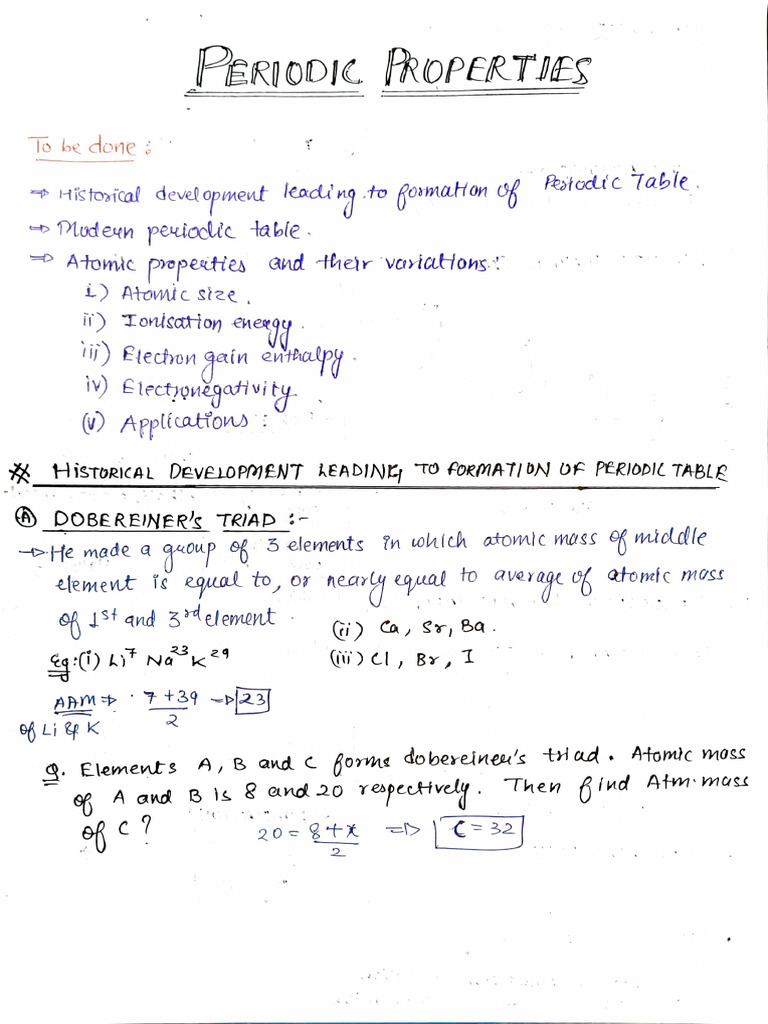 PERIODIC PROPERTIES
To be done :
⇒ Historical development leading to formation of Periodic Table.
⇒ Modern periodic table.
⇒ Atomic properties and their variations :
i) Atomic size.
ii) Ionisation energy.
iii) Electron gain enthalpy.
iv) Electronegativity
(v) Applications :
※ HISTORICAL DEVELOPMENT LEADING TO FORMATION OF PERIODIC TABLE
Ⓐ DOBEREINER'S TRIAD :-
→ He made a group of 3 elements in which atomic mass of middle
element is equal to, or nearly equal to average of atomic mass
of 1st and 3rd element.
(ii) Ca, Sr, Ba.
Eg:(i) Li⁷ Na²³ K²⁹
(iii) Cl, Br, I
AAM ⇒ 7+39/2 ⇒ 23
of Li & K
Q. Elements A, B and C forms dobereiner's triad. Atomic mass
of A and B is 8 and 20 respectively. Then find Atm. mass
of C?
20 = 8+x/2 ⇒ C = 32